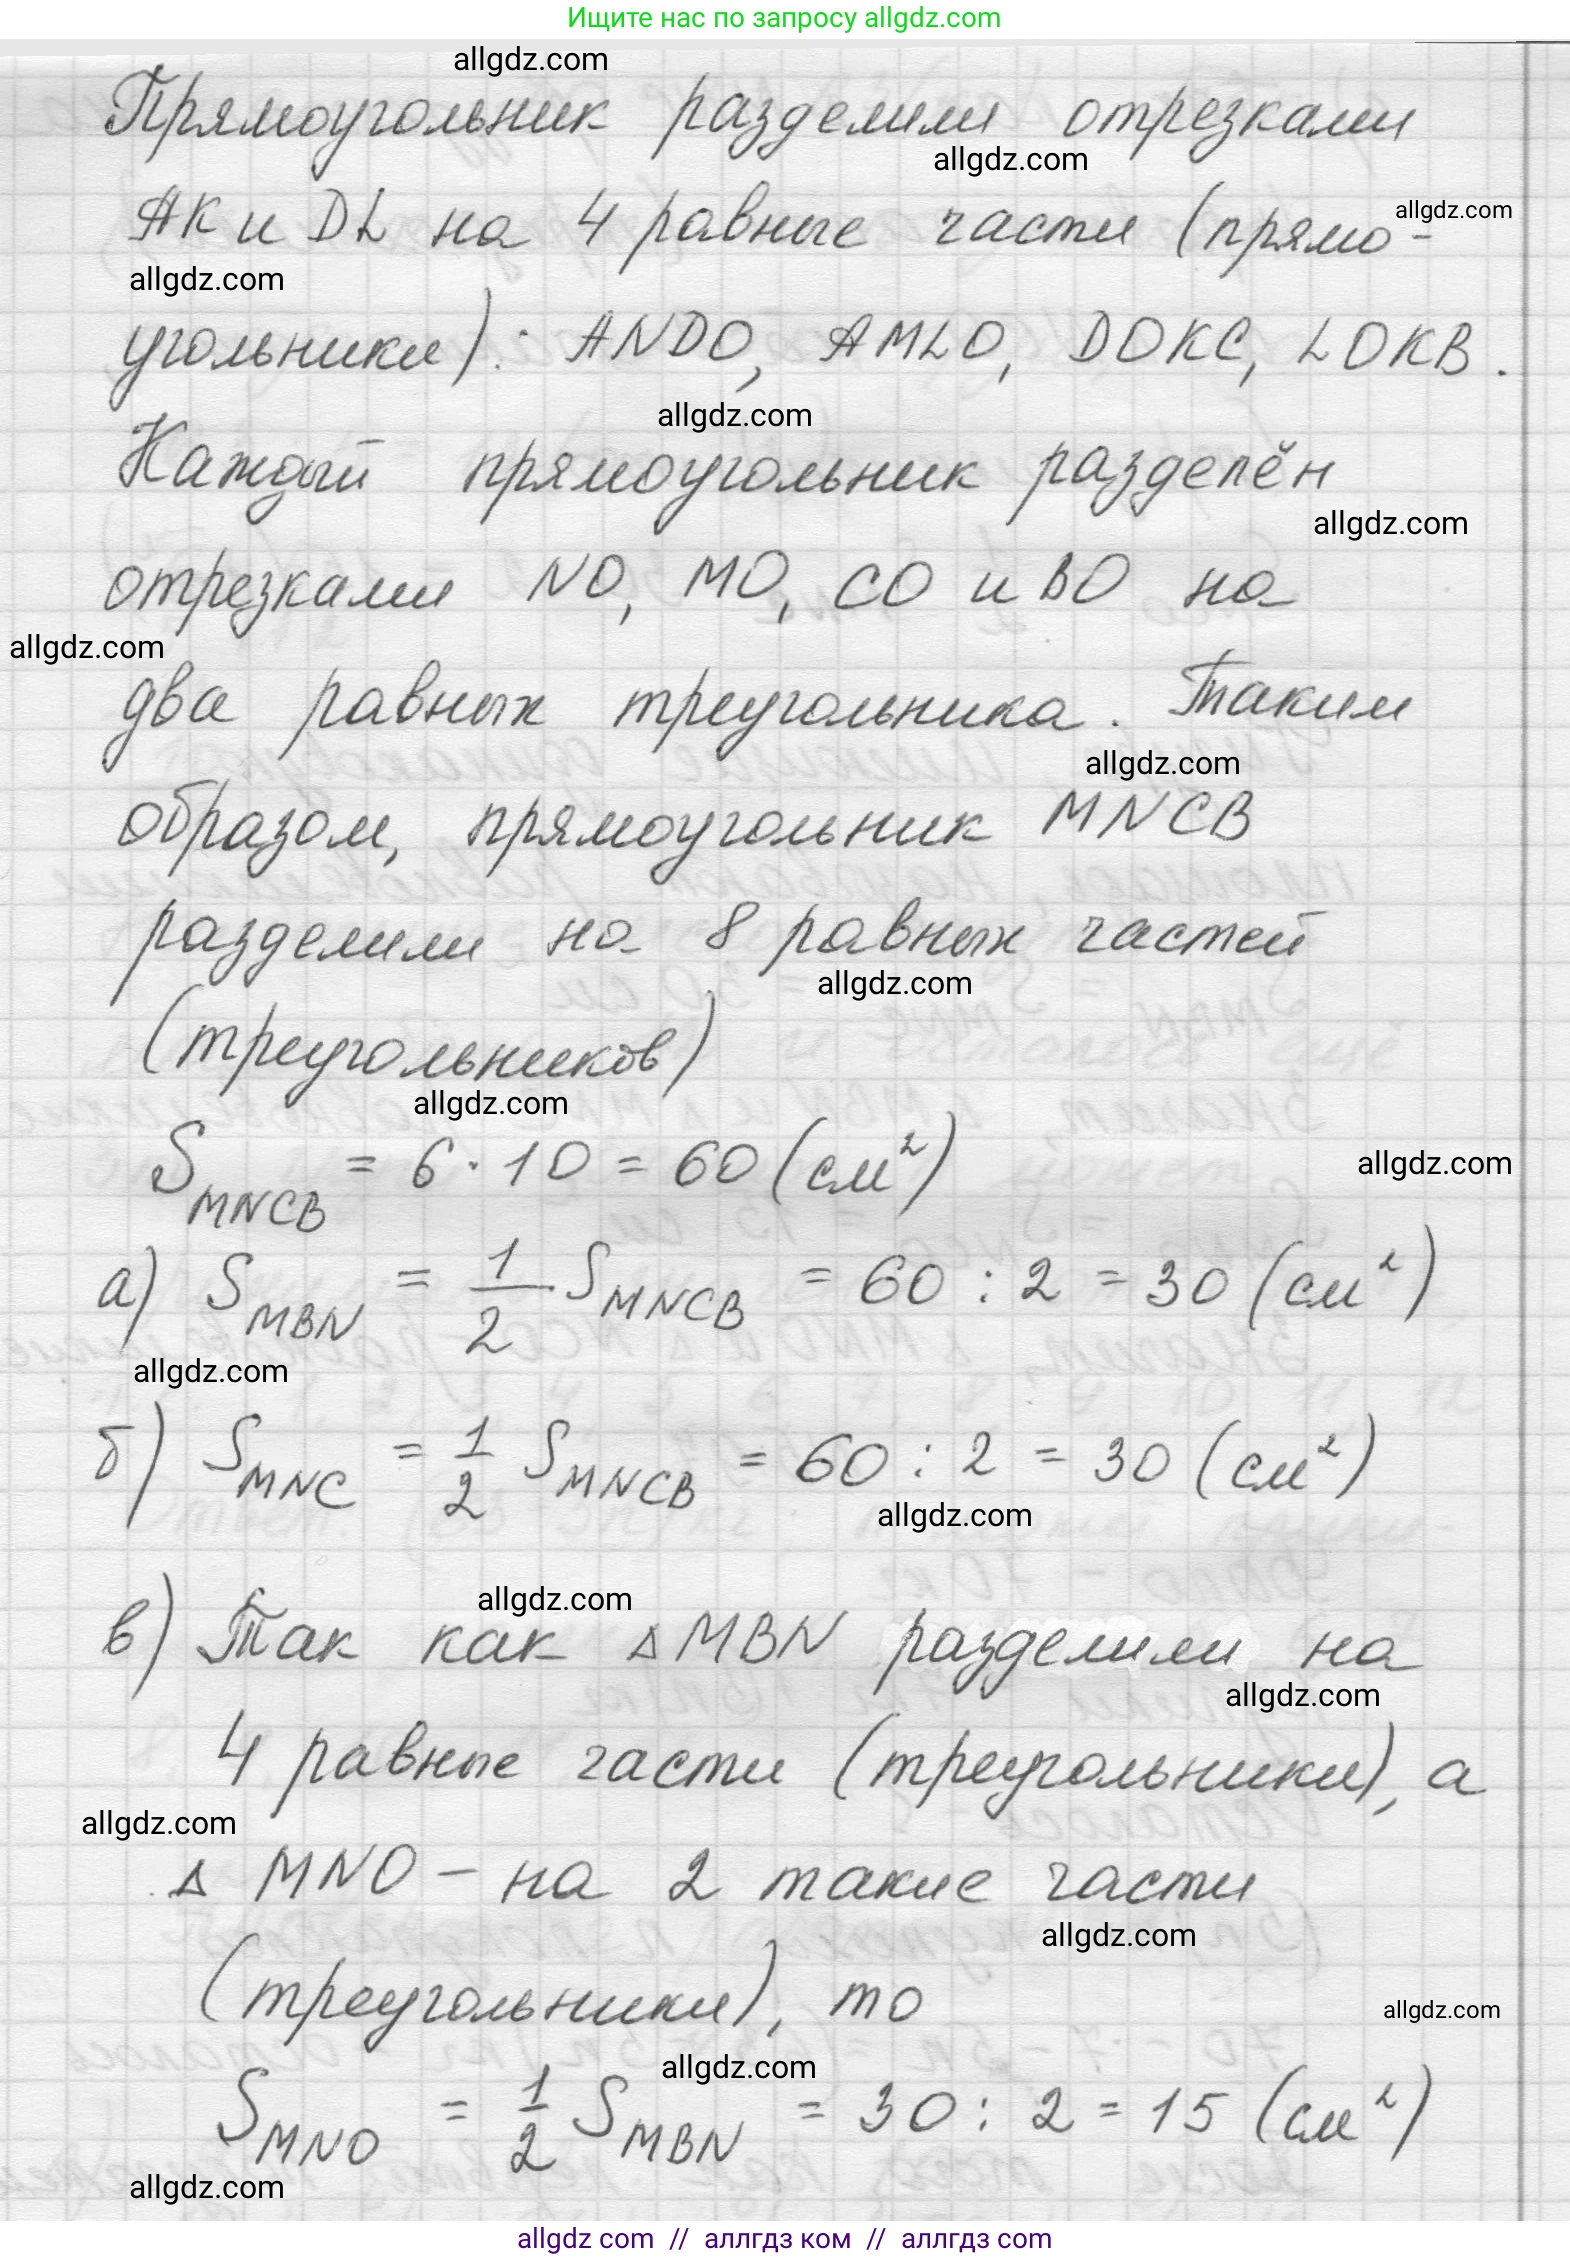 Ищите нас по запросу allgdz.com
allgdz.com
Прямоугольник разделили отрезками
allgdz.com
АК и DL на 4 равные части (прямо-
allgdz.com
allgdz.com
угольники): ANDO, AMLO, DOKC, LOKB.
allgdz.com
Каждый прямоугольник разделён
allgdz.com
отрезками NO, MO, CO и BO на
allgdz.com
два равных треугольника. Таким
allgdz.com
образом, прямоугольник MNCB
разделили на 8 равных частей
allgdz.com
(треугольников)
allgdz.com
S MNCB = 6 · 10 = 60 (см²)
allgdz.com
а) S MBN = 1/2 S MNCB = 60 : 2 = 30 (см²)
allgdz.com
б) S MNC = 1/2 S MNCB = 60 : 2 = 30 (см²)
allgdz.com
allgdz.com
в) Так как Δ MBN разделили на
allgdz.com
4 равные части (треугольники), а
allgdz.com
Δ MNO – на 2 такие части
allgdz.com
(треугольники), то
allgdz.com
allgdz.com
S MNO = 1/2 S MBN = 30 : 2 = 15 (см²)
allgdz.com
allgdz com // аллгдз ком // аллгдз com